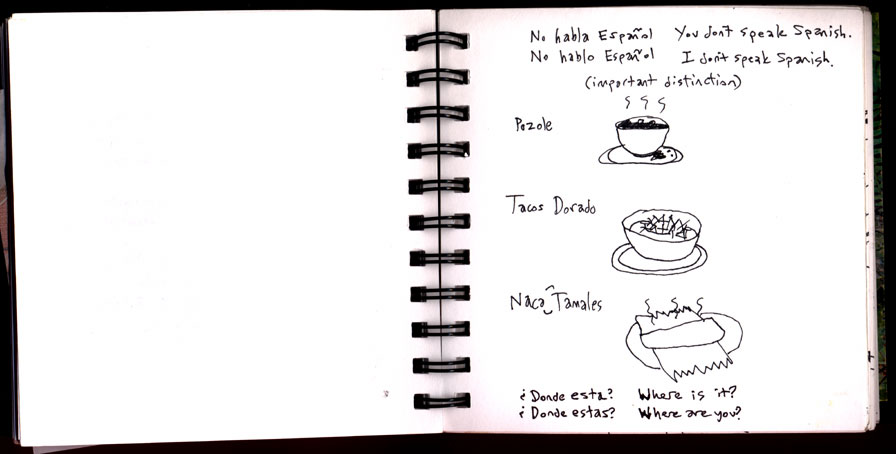 No habla Español You don't speak Spanish.
No hablo Español I don't speak Spanish.
(important distinction)
Pozole
Tacos Dorado
Naca Tamales
¿Donde esta? Where is it?
¿Donde estas? Where are you?